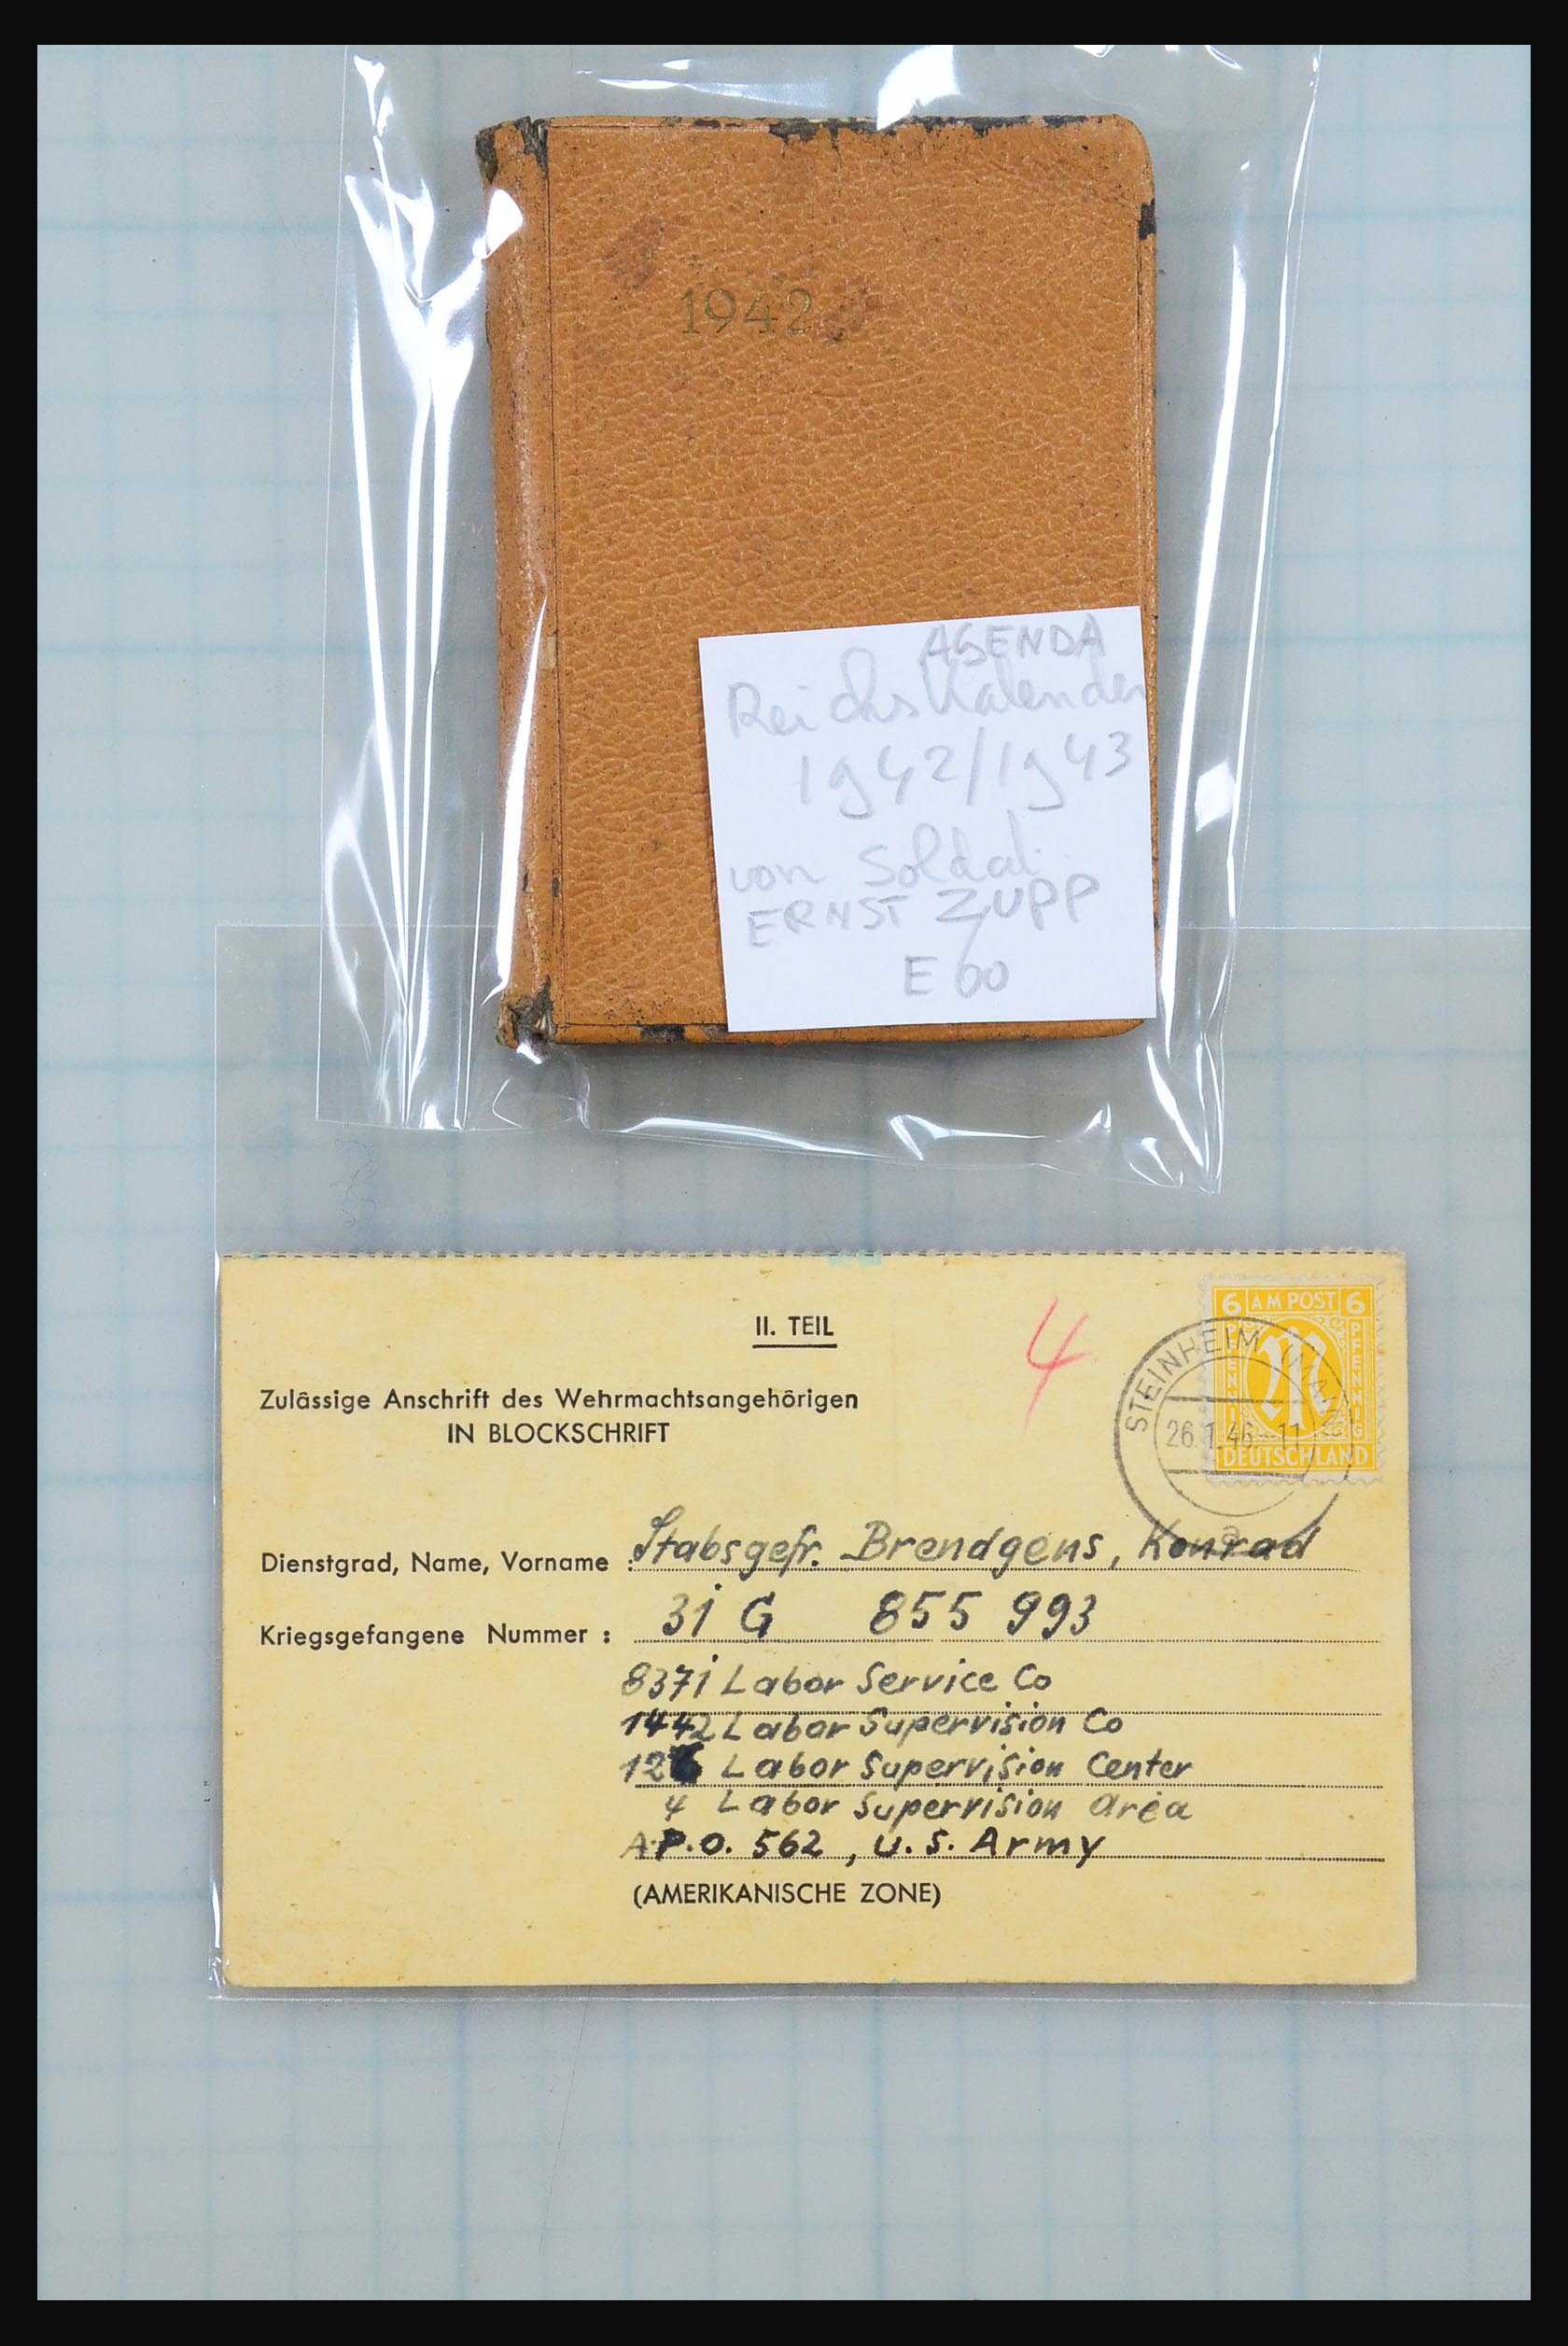 1942
AGENDA
Reichskalender
1942/1943
von Soldat
ERNST ZUPP
E 60
II. TEIL
4
6 AM POST 6
PFENNIG
PFENNIG
DEUTSCHLAND
STEINHEIM (MAIN)
26.1.46-11
a
Zulässige Anschrift des Wehrmachtsangehörigen
IN BLOCKSCHRIFT
Dienstgrad, Name, Vorname : Stabsgefr. Brendgens, Konrad
Kriegsgefangene Nummer : 31 G 855 993
8371 Labor Service Co
1442 Labor Supervision Co
Labor Supervision Center
4 Labor Supervision Area
A.P.O. 562, U.S. Army
(AMERIKANISCHE ZONE)